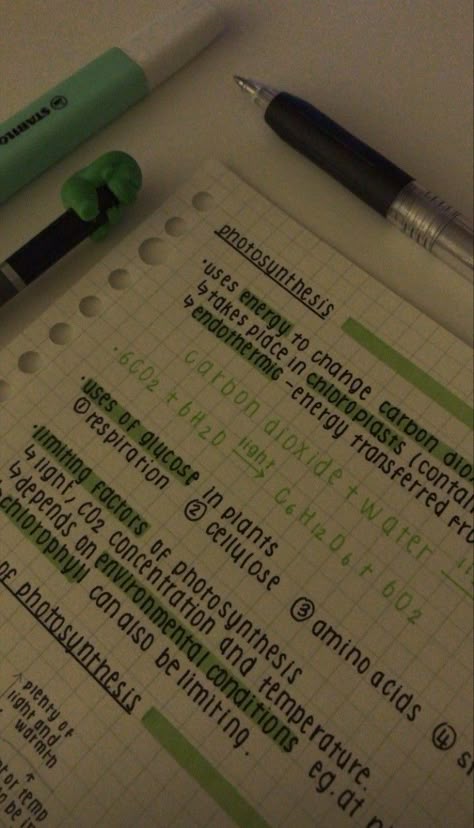 STABILO
photosynthesis
·uses energy to change carbon
↳takes place in chloroplasts
↳endothermic -energy transferred
carbon dioxide + water
·6CO2 + 6H2O light → C6H12O6 + 6O2
·uses of glucose in plants
①respiration ②cellulose ③amino acids ④
·limiting factors of photosynthesis
↳light, CO2 concentration and temperature.
↳depends on environmental conditions eg. at
chlorophyll can also be limiting.
of photosynthesis
↑ plenty of
light and
warmth
or temp